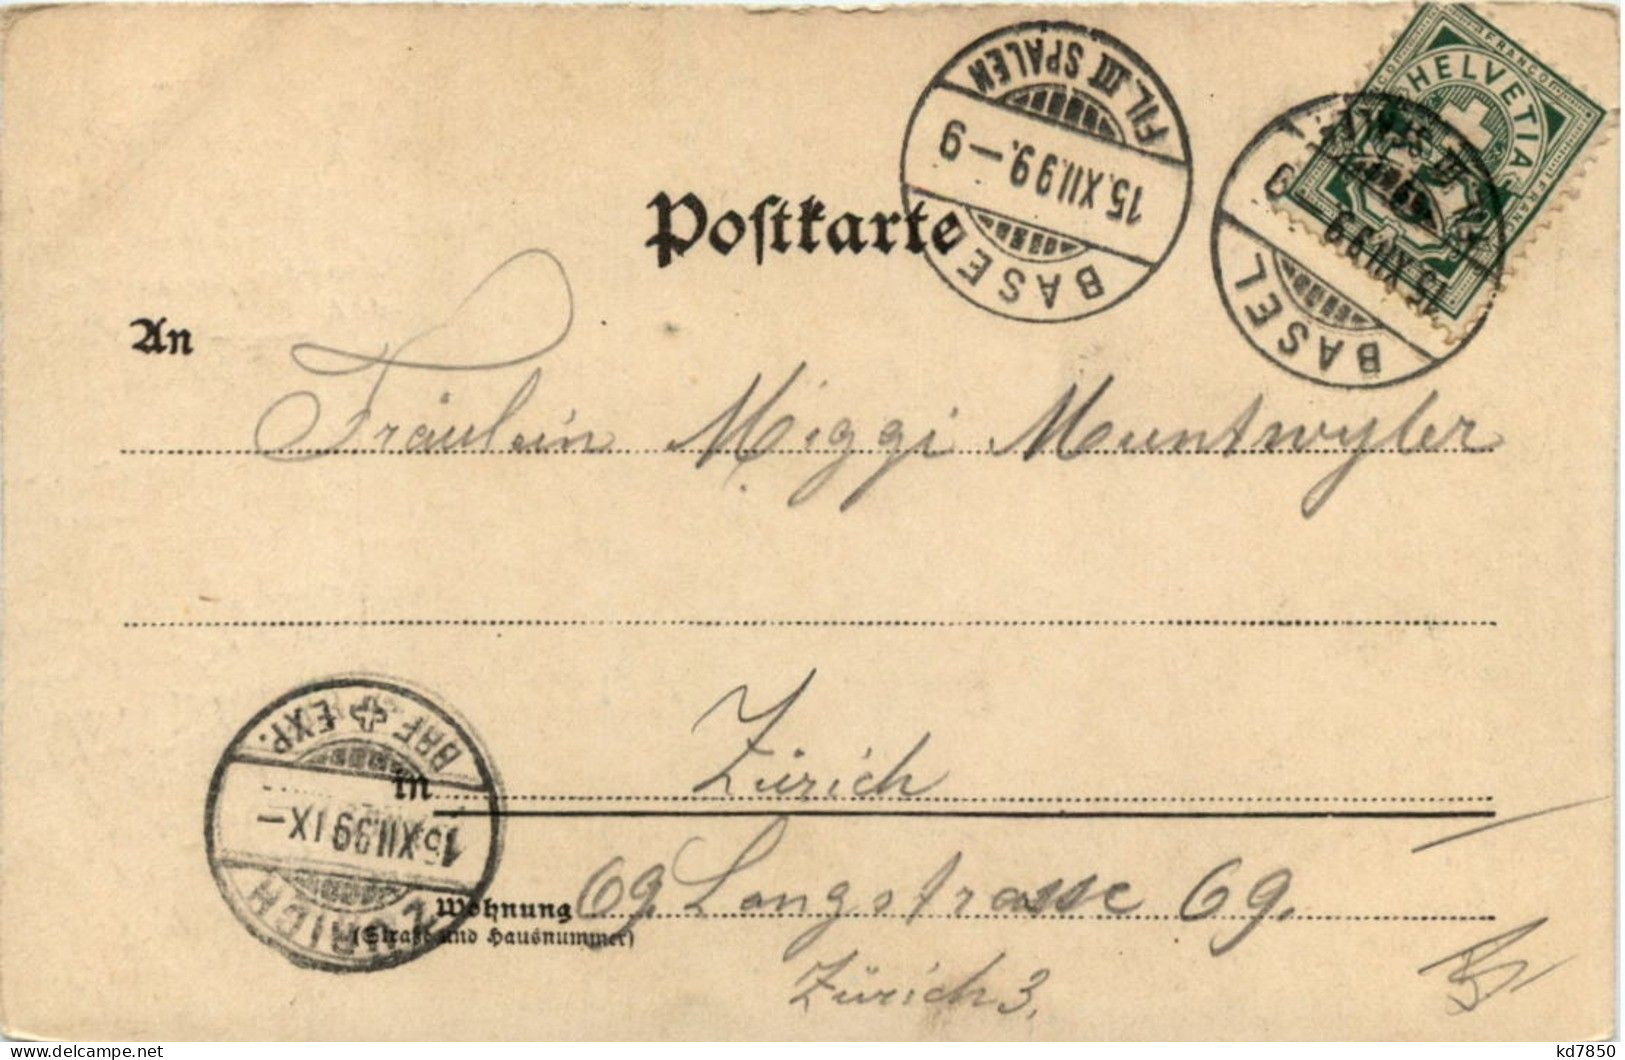 Postkarte
BASEL
15.XII.99.—9
FIL. III SPALEN
BASEL
15.XII.99
9
FRANCO
HELVETIA
FRANCO
An
Fräulein Miggi Muntwyler
in Zürich
BRF EXP.
15.XII.99 IX—
ZÜRICH
Wohnung 69. Langstrasse 69.
(Straße und Hausnummer)
Zürich 3.
delcampe.net
kd7850